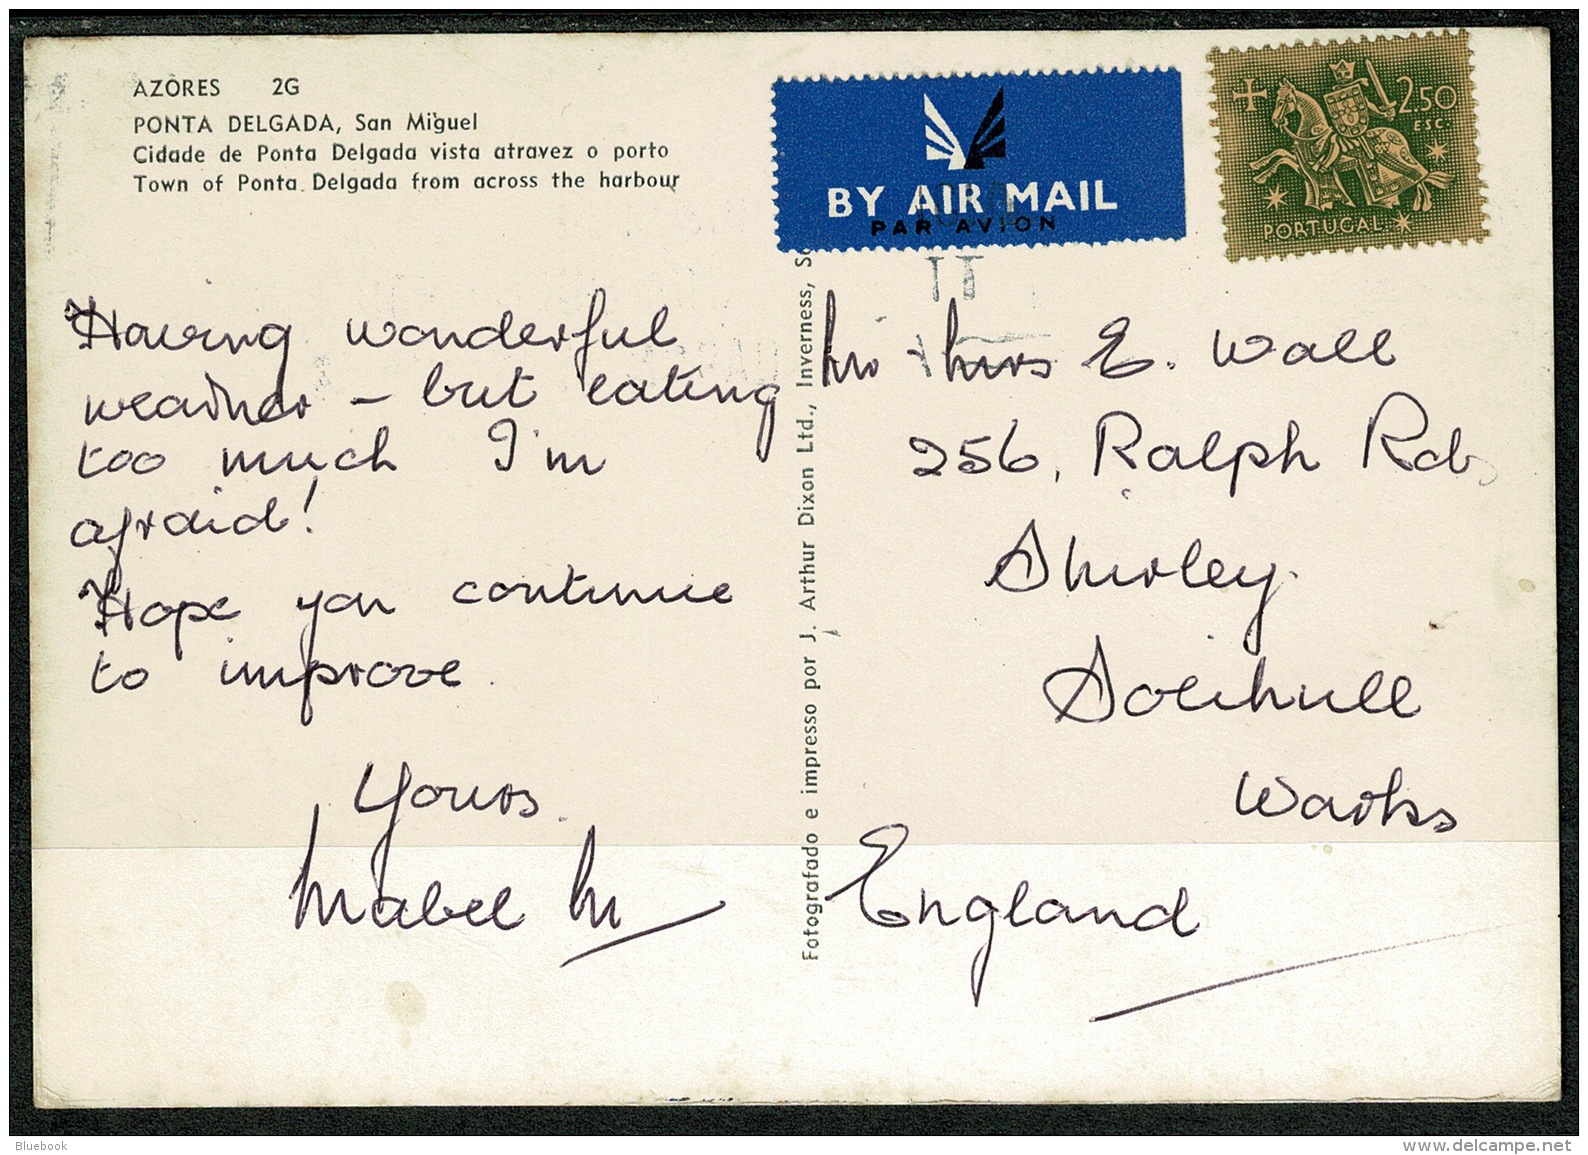 AZORES 2G
PONTA DELGADA, San Miguel
Cidade de Ponta Delgada vista atravez o porto
Town of Ponta Delgada from across the harbour
BY AIR MAIL
PAR AVION
2.50
ESC.
PORTUGAL
Having wonderful
weather - but eating
too much I'm
afraid!
Hope you continue
to improve.
Yours.
Mabel M
Fotografado e impresso por J. Arthur Dixon Ltd., Inverness,
Mr + Mrs E. Wall
256, Ralph Rd,
Shirley.
Solihull
Warks
England
Bluebook
www.delcampe.net